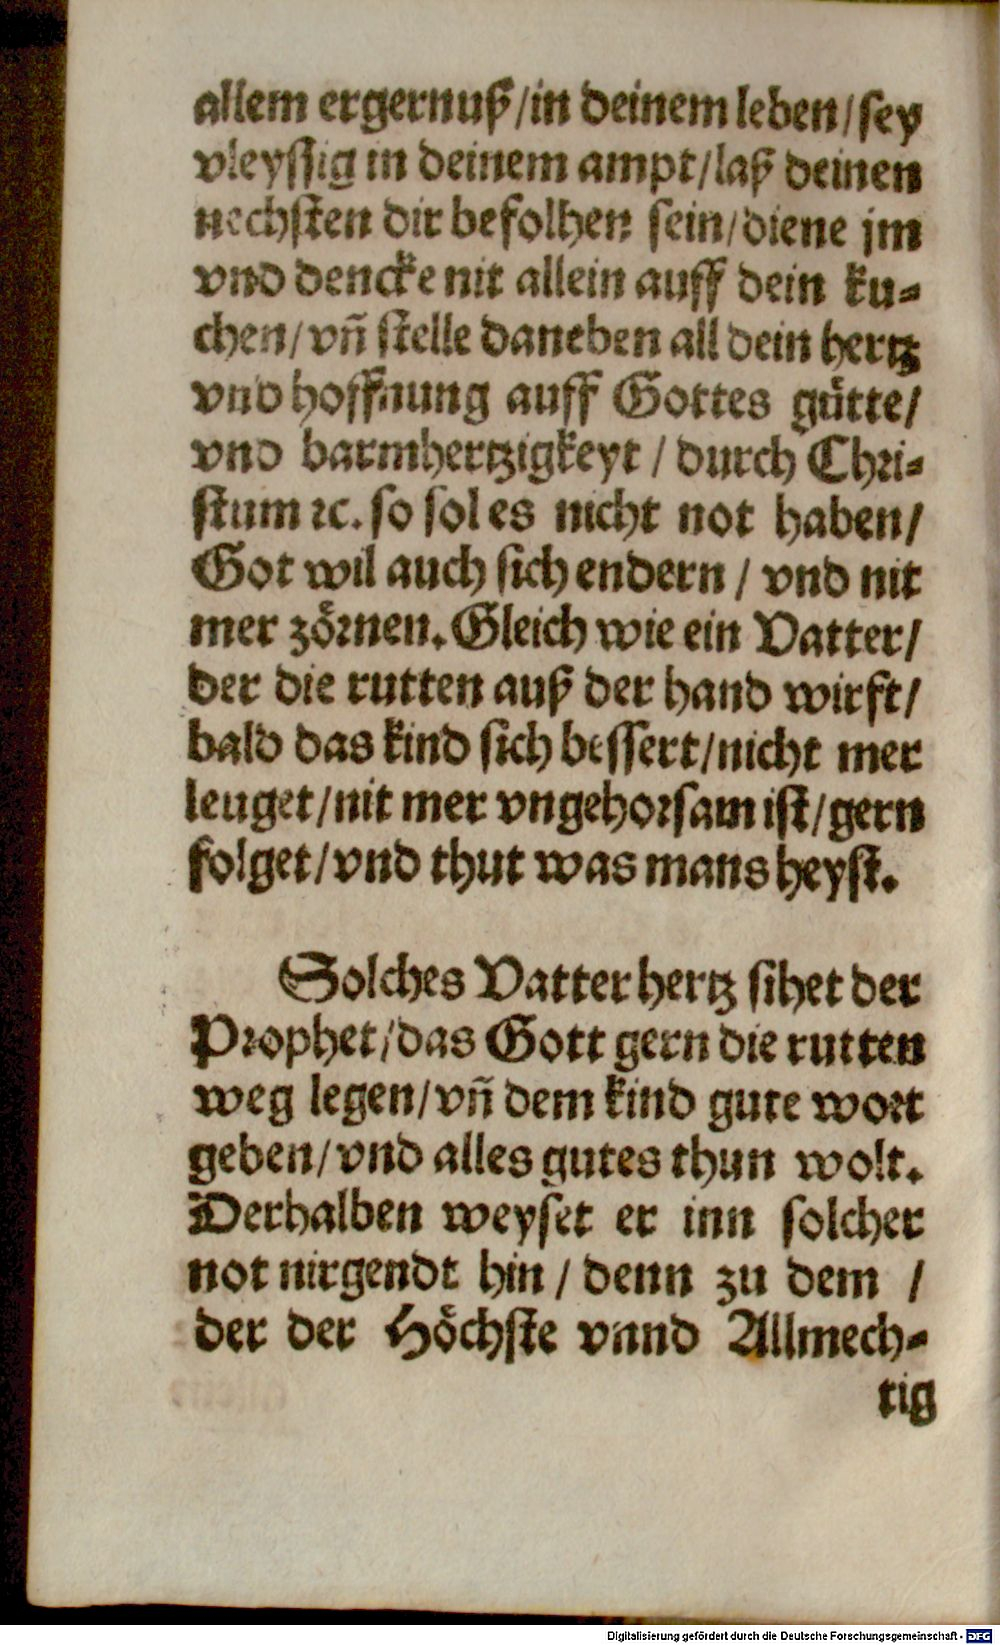 allem ergernuß/in deinem leben/sey
vleyssig in deinem ampt/laß deinen
nechsten dir befolhen sein/diene jm
vnd dencke nit allein auff dein ku-
chen/vñ stelle daneben all dein hertz
vnd hoffnung auff Gottes gůtte/
vnd barmhertzigkeyt/durch Chri-
stum ꝛc. so sol es nicht not haben/
Got wil auch sich endern/vnd nit
mer zörnen. Gleich wie ein Vatter/
der die rutten auß der hand wirft/
bald das kind sich bessert/nicht mer
leuget/nit mer vngehorsam ist/gern
folget/vnd thut was mans heyst.
Solches Vatter hertz sihet der
Prophet/das Gott gern die rutten
weg legen/vñ dem kind gute wort
geben/vnd alles gutes thun wolt.
Derhalben weyset er inn solcher
not nirgendt hin/denn zu dem/
der der Höchste vnnd Allmech-
tig
Digitalisierung gefördert durch die Deutsche Forschungsgemeinschaft - DFG